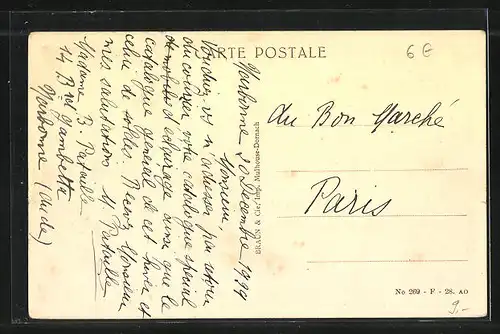 CARTE POSTALE
6 €
Narbonne 20 Decembre 1924
Monsieur,
Voudriez-vs m'adresser par retour
du courrier votre catalogue special
d'eclairage ainsi que le
catalogue general de cet hiver et
celui de soldes. Recevez Monsieur
mes salutations M Pataille
Madame B. Pataille
14 Bd Gambetta
Narbonne (Aude)
BRAUN & Cie, Imp. Mulhouse-Dornach
Au Bon Marché
Paris
No 269 - F - 28. AO
9.-